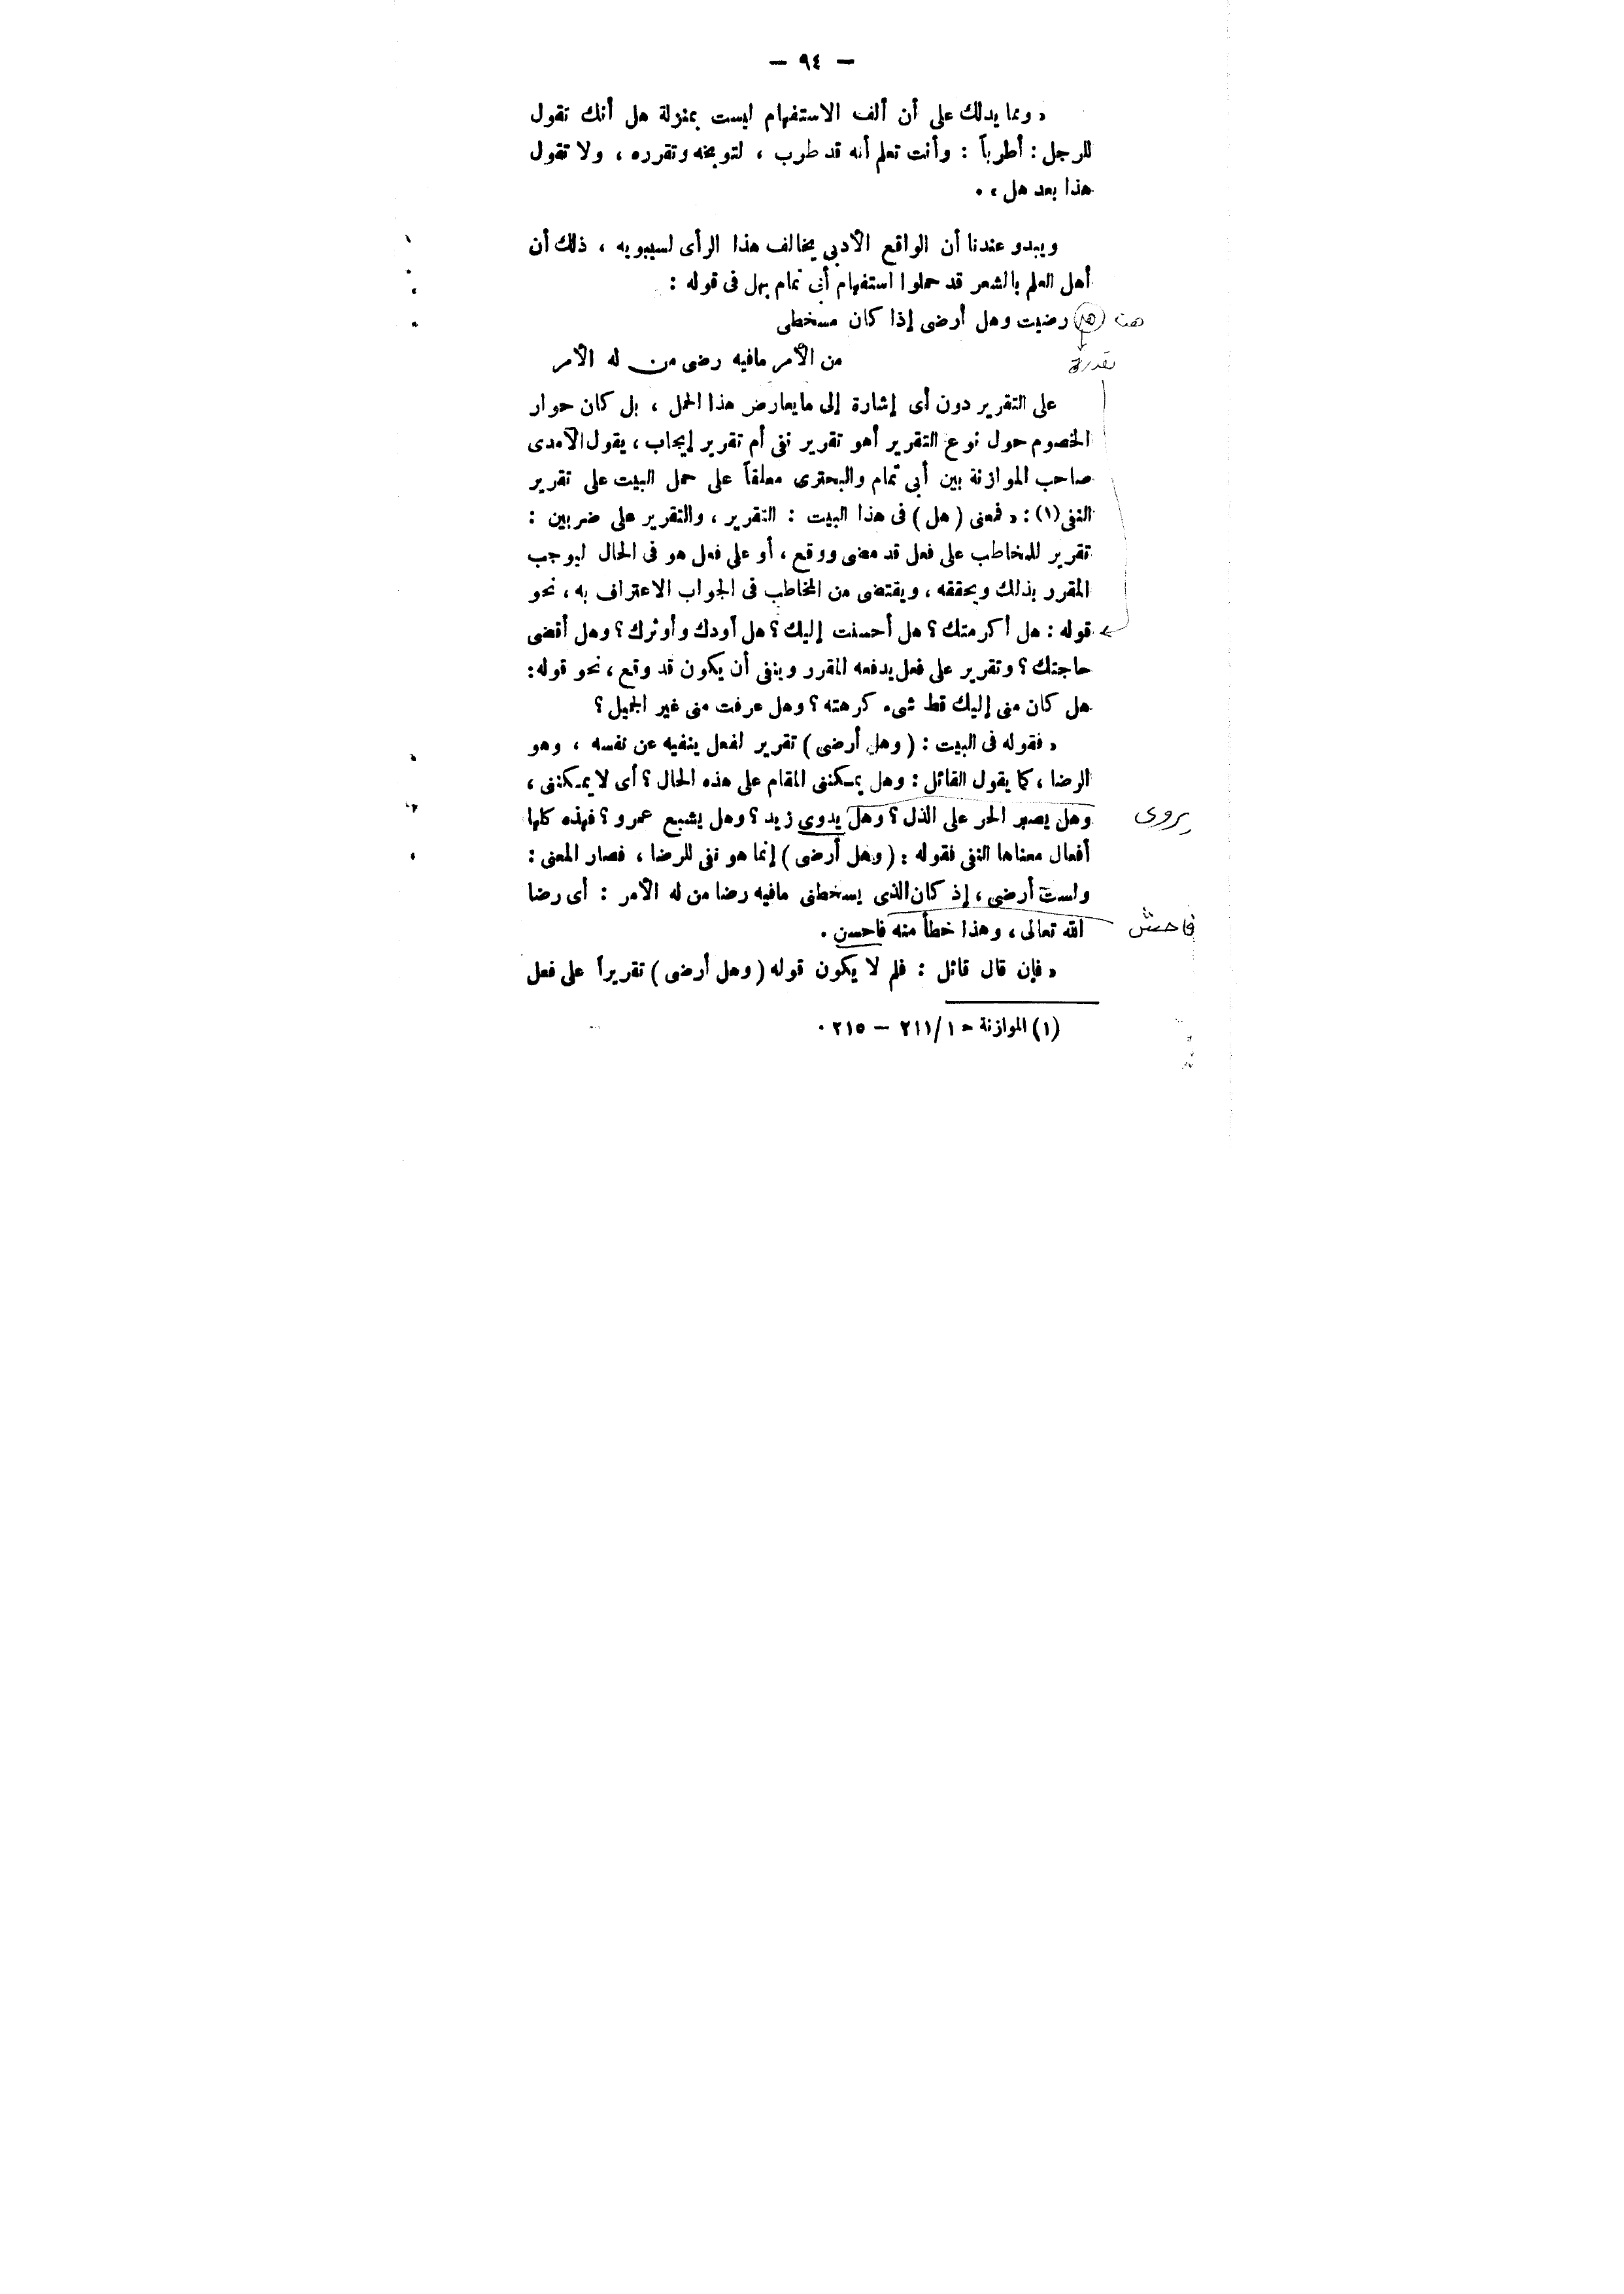 — ٩٤ —
« ومما يدلك على أن ألف الاستفهام ليست بمنزلة هل أنك تقول
للرجل : أطرباً : وأنت تعلم أنه قد طرب ، لتوبخه وتقرره ، ولا تقول
هذا بعد هل » .
ويبدو عندنا أن الواقع الأدبى يخالف هذا الرأى لسيبويه ، ذلك أن
أهل العلم بالشعر قد حملوا استفهام أبى تمام بهل فى قوله :
(هل) رضيت وهل أرضى إذا كان مسخطى
من الأمر مافيه رضى من له الأمر
على التقرير دون أى إشارة إلى مايعارض هذا الحمل ، بل كان حوار
الخصوم حول نوع التقرير أهو تقرير نفى أم تقرير إيجاب ، يقول الآمدى
صاحب الموازنة بين أبى تمام والبحترى معلقاً على حمل البيت على تقرير
النفى (١) : « فمعنى ( هل ) فى هذا البيت : التقرير ، والتقرير على ضربين :
تقرير للمخاطب على فعل قد مضى ووقع ، أو على فعل هو فى الحال ليوجب
المقرر بذلك ويحققه ، ويقتضى من المخاطب فى الجواب الاعتراف به ، نحو
قوله : هل أكرمتك ؟ هل أحسنت إليك ؟ هل أودك وأوثرك ؟ وهل أقضى
حاجتك ؟ وتقرير على فعل يدفعه المقرر وينفى أن يكون قد وقع ، نحو قوله :
هل كان منى إليك قط شىء كرهته ؟ وهل عرفت منى غير الجميل ؟
« فقوله فى البيت : ( وهل أرضى ) تقرير لفعل ينفيه عن نفسه ، وهو
الرضا ، كما يقول القائل : وهل يمكننى المقام على هذه الحال ؟ أى لا يمكننى ،
وهل يصبر الحر على الذل ؟ وهل يدوى زيد ؟ وهل يشبع عمرو ؟ فهذه كلها
يروى
أفعال معناها النفى فقوله : ( وهل أرضى ) إنما هو نفى للرضا ، فصار المعنى :
ولست أرضى ، إذ كان الذى يسخطنى مافيه رضا من له الأمر : أى رضا
الله تعالى ، وهذا خطأ منه فاحسن .
فاحش
« فإن قال قائل : فلم لا يكون قوله ( وهل أرضى ) تقريراً على فعل
(١) الموازنة ح ١ / ٢١١ — ٢١٥ .